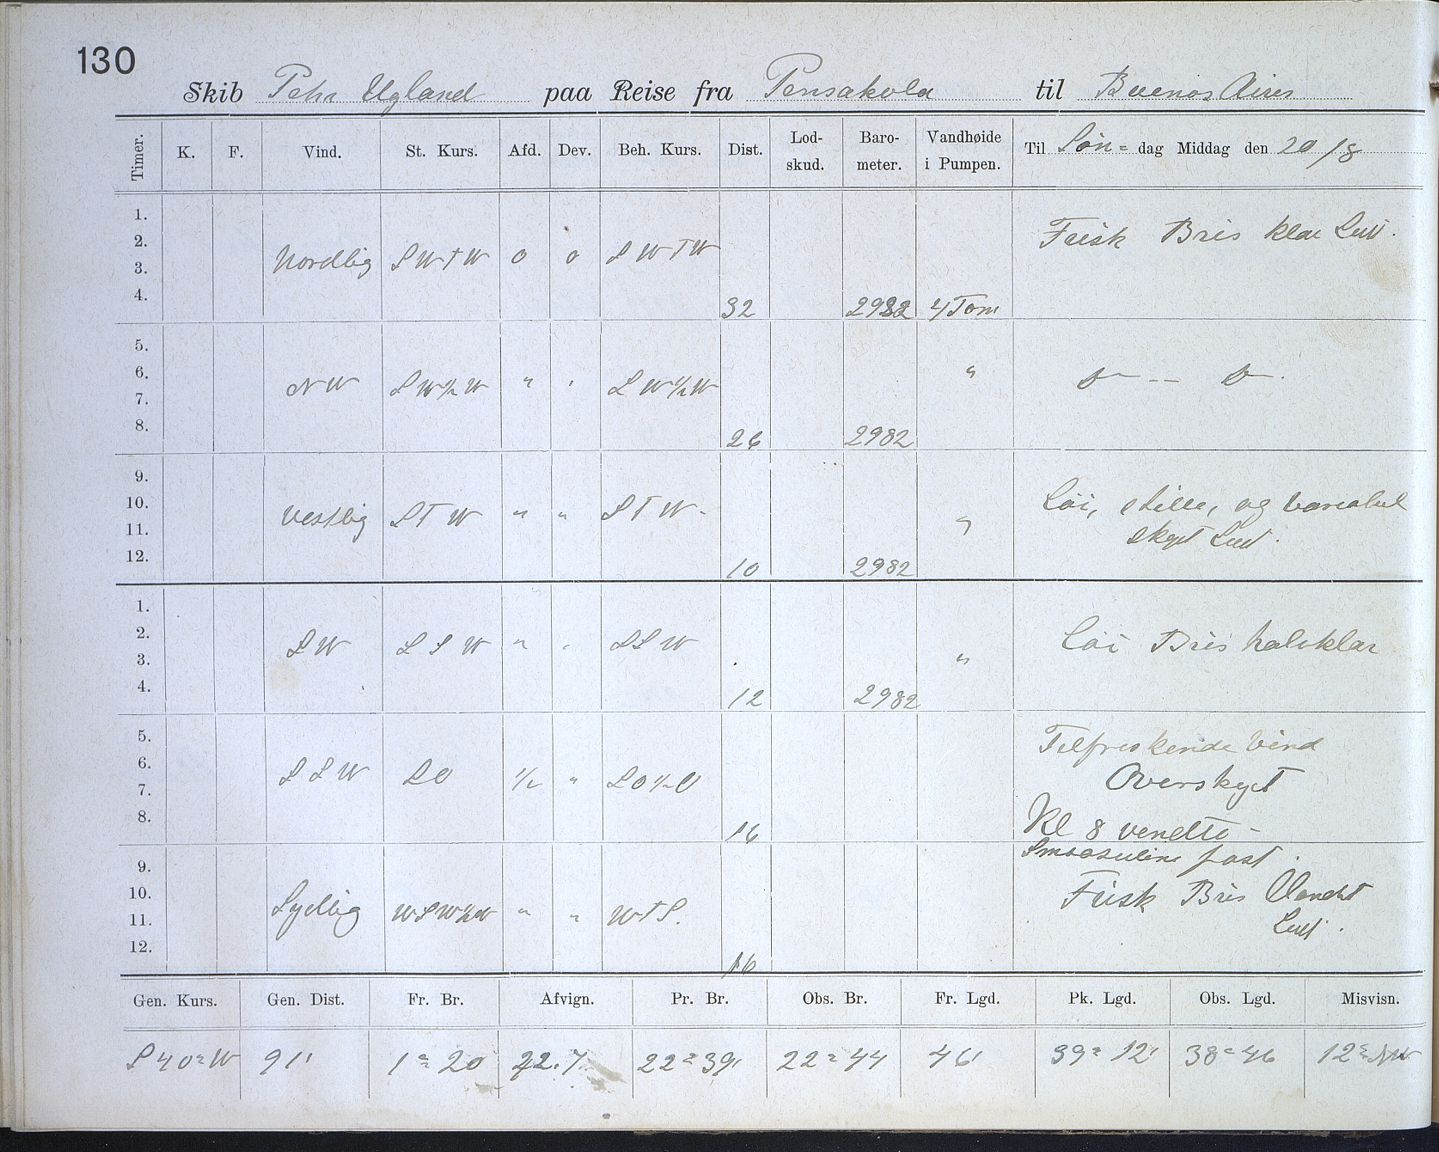 130
Skib Pehr Ugland paa Reise fra Pensakola til Buenos Aires
Timer. K. F. Vind. St. Kurs. Afd. Dev. Beh. Kurs. Dist. Lodskud. Barometer. Vandhøide i Pumpen. Til Søn= dag Middag den 20/8
1.
2. Frisk Bris klar Luft.
3. Nordlig SWTW 0 0 SWTW
4. 32 2982 4 Tom
5.
6. NW SW½W " " SW½W " D — D.
7.
8. 26 2982
9.
10. Vestlig STW " " STW. " Løi, stille, og variabel
11. skyet Luft.
12. 10 2982
1.
2. SW SSW " " SSW Løi Bris halvklar
3. "
4. 12 2982
5. Tilfriskende Vind
6. SSW SO ½ " SO½O Overskyet
7.
8. 16 Kl 8 vendte
9. fast.
10. Sydlig WSW½W " " WTS. Frisk Bris
11. Luft.
12. 16
Gen. Kurs. Gen. Dist. Fr. Br. Afvign. Pr. Br. Obs. Br. Fr. Lgd. Pk. Lgd. Obs. Lgd. Misvisn.
S 40° W 91' 1° 20 22° 39' 22° 44 46' 39° 12' 38° 46 12° NW